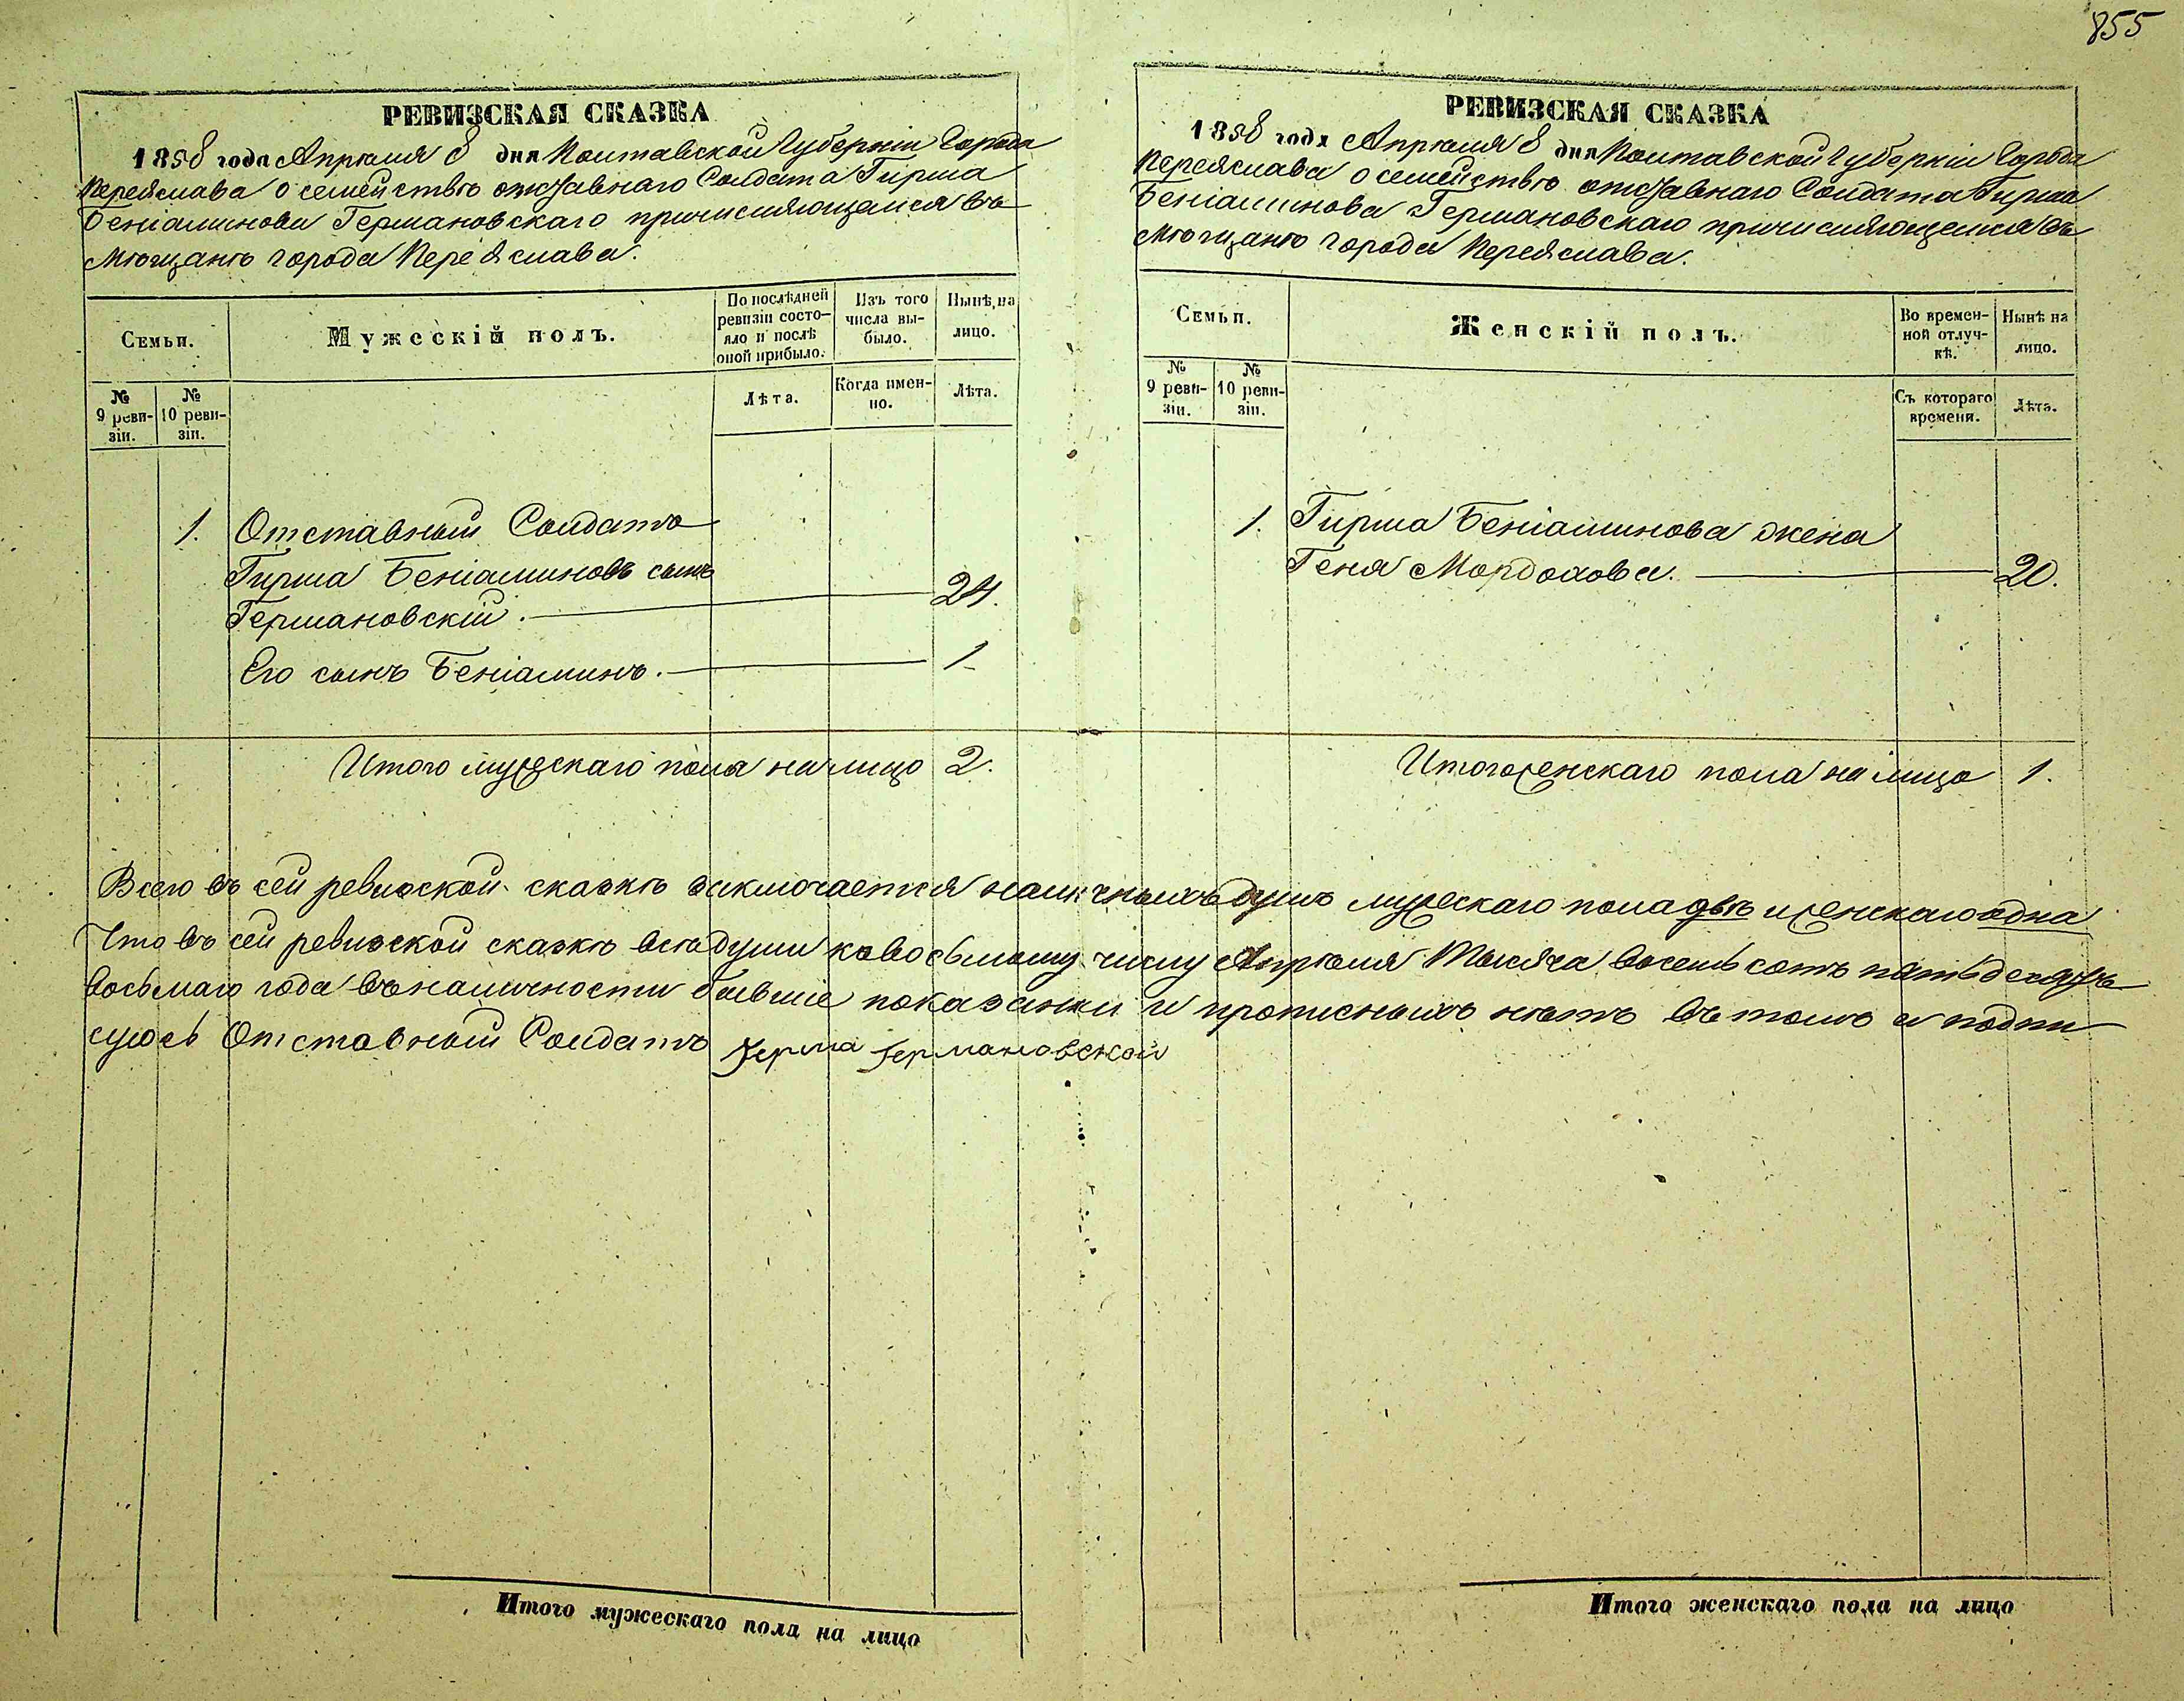 855
РЕВИЗСКАЯ СКАЗКА
1858 года Апрѣля 8 дня Полтавской Губерніи Города
Переяслава о семействѣ отставнаго Солдата Гирша
Беніаминова Германовскаго причисляющемся въ
Мѣщанѣ города Переяслава.
Семьи.
Мужескій полъ.
По послѣдней
ревизіи состо-
яло и послѣ
оной прибыло.
Изъ того
числа вы-
было.
Нынѣ на
лицо.
№
9 реви-
зіи.
№
10 реви-
зіи.
Лѣта.
Когда имен-
но.
Лѣта.
1. Отставный Солдатъ
Гирша Беніаминовъ сынъ
Германовскій. 24.
Его сынъ Беніаминъ. 1
Итого мужескаго пола на лицо 2.
РЕВИЗСКАЯ СКАЗКА
1858 года Апрѣля 8 дня Полтавской Губерніи Города
Переяслава о семействѣ отставнаго Солдата Гирша
Беніаминова Германовскаго причисляющемся въ
Мѣщанѣ города Переяслава.
Семьи.
Женскій полъ.
Во времен-
ной отлуч-
кѣ.
Нынѣ на
лицо.
№
9 реви-
зіи.
№
10 реви-
зіи.
Съ котораго
времени.
Лѣта.
1. Гирша Беніаминова жена
Геня Мордохова. 20.
Итого женскаго пола на лицо 1.
Всего въ сей ревизской сказкѣ заключается наличныхъ душъ мужескаго пола двѣ и женскаго одна
Что въ сей ревизской сказкѣ всѣ души ко восьмому числу Апрѣля Тысяча восемь сотъ пятьдесятъ
восьмаго года въ наличности бывшіе показанни и прописныхъ нѣтъ въ томъ и подпи-
суюсь Отставный Солдатъ Герша Германовской
Итого мужескаго пола на лицо
Итого женскаго пола на лицо